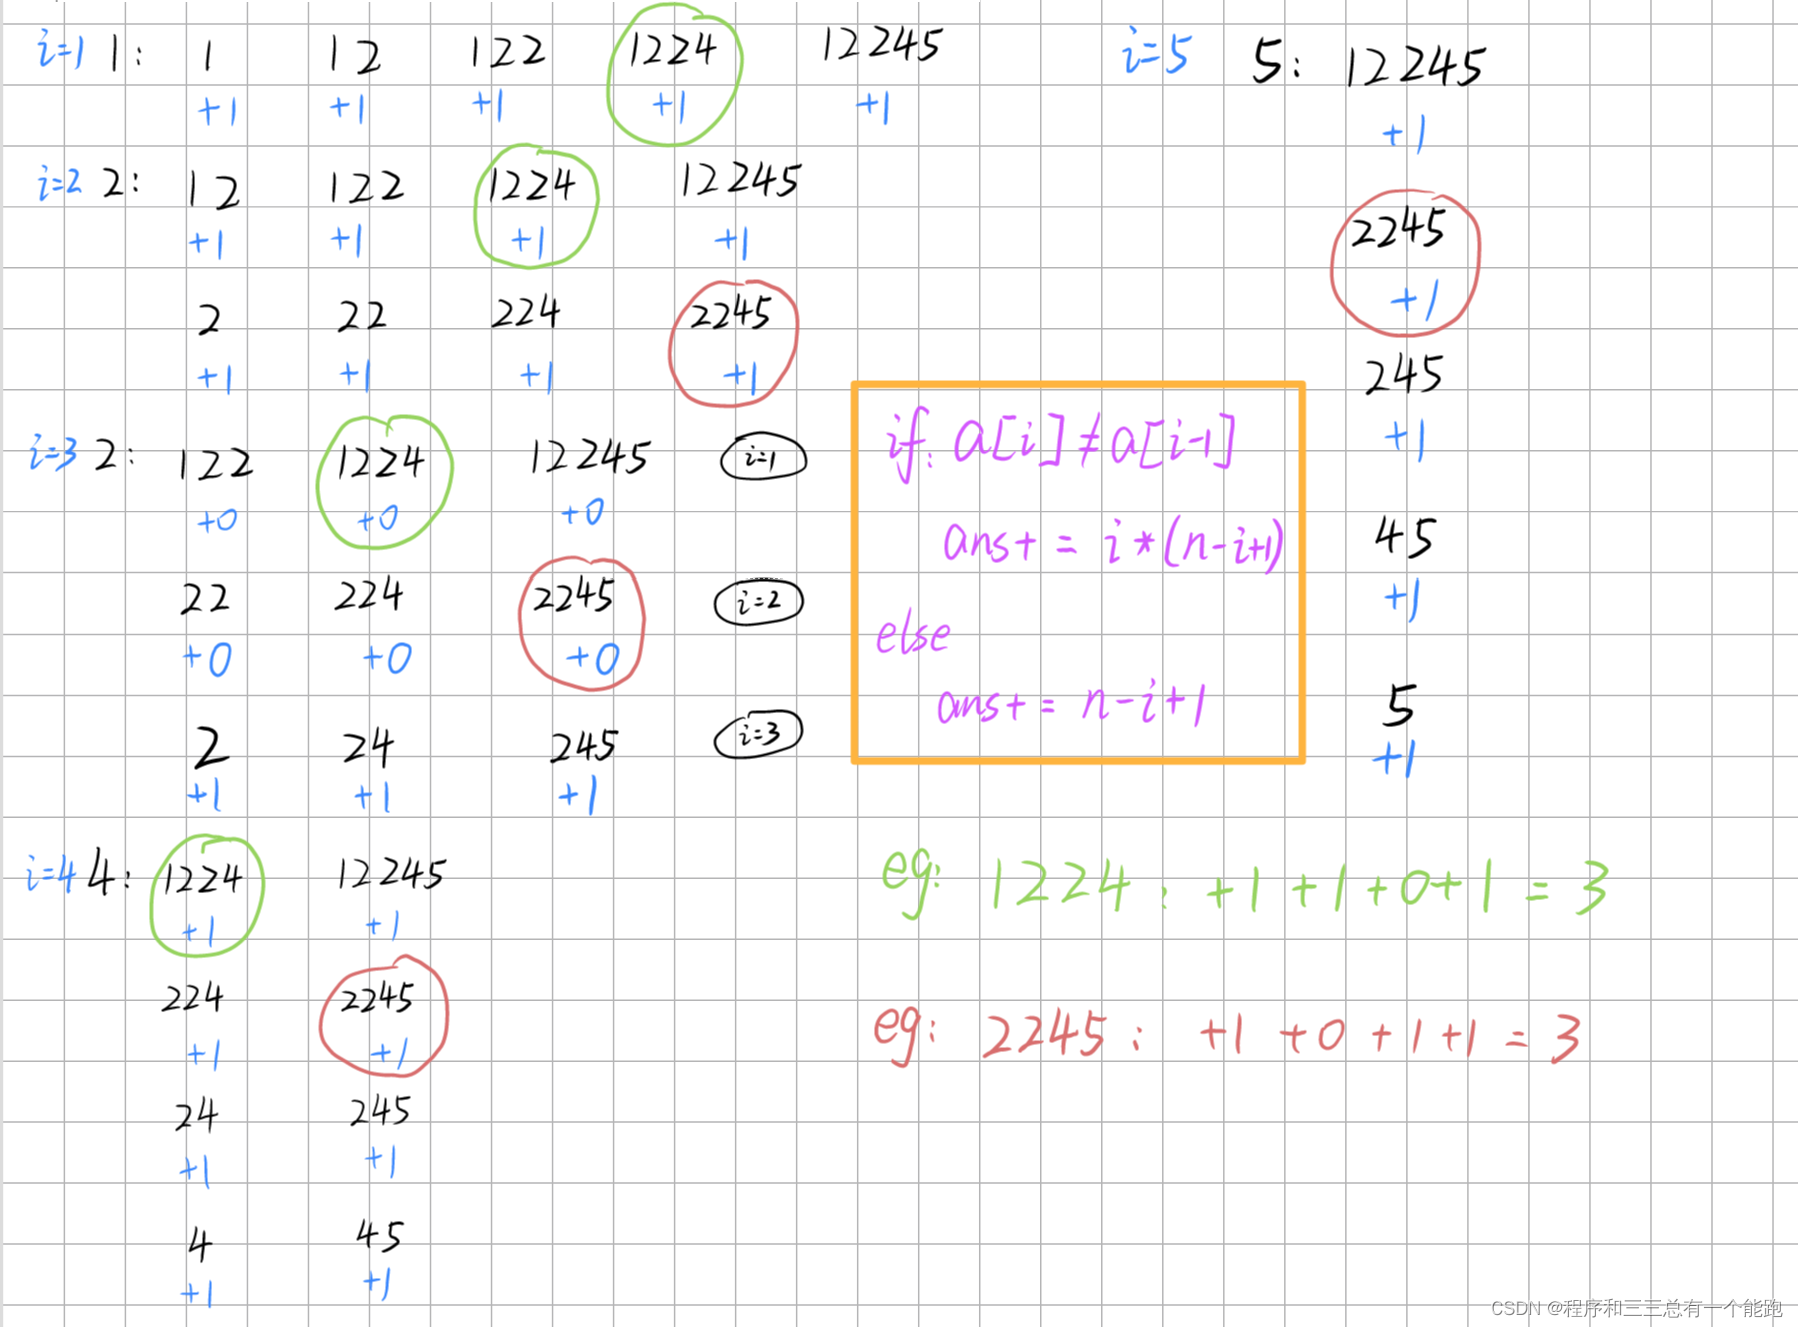 i=1 1: 1 12 122 1224 12245
+1 +1 +1 +1 +1
i=2 2: 12 122 1224 12245
+1 +1 +1 +1
2 22 224 2245
+1 +1 +1 +1
i=3 2: 122 1224 12245 i=1
+0 +0 +0
22 224 2245 i=2
+0 +0 +0
2 24 245 i=3
+1 +1 +1
i=4 4: 1224 12245
+1 +1
224 2245
+1 +1
24 245
+1 +1
4 45
+1 +1
i=5 5: 12245
+1
2245
+1
245
+1
45
+1
5
+1
if: a[i]≠a[i-1]
ans+ = i*(n-i+1)
else
ans+ = n-i+1
eg: 1224: +1+1+0+1=3
eg: 2245: +1+0+1+1=3
CSDN @程序和三三总有一个能跑